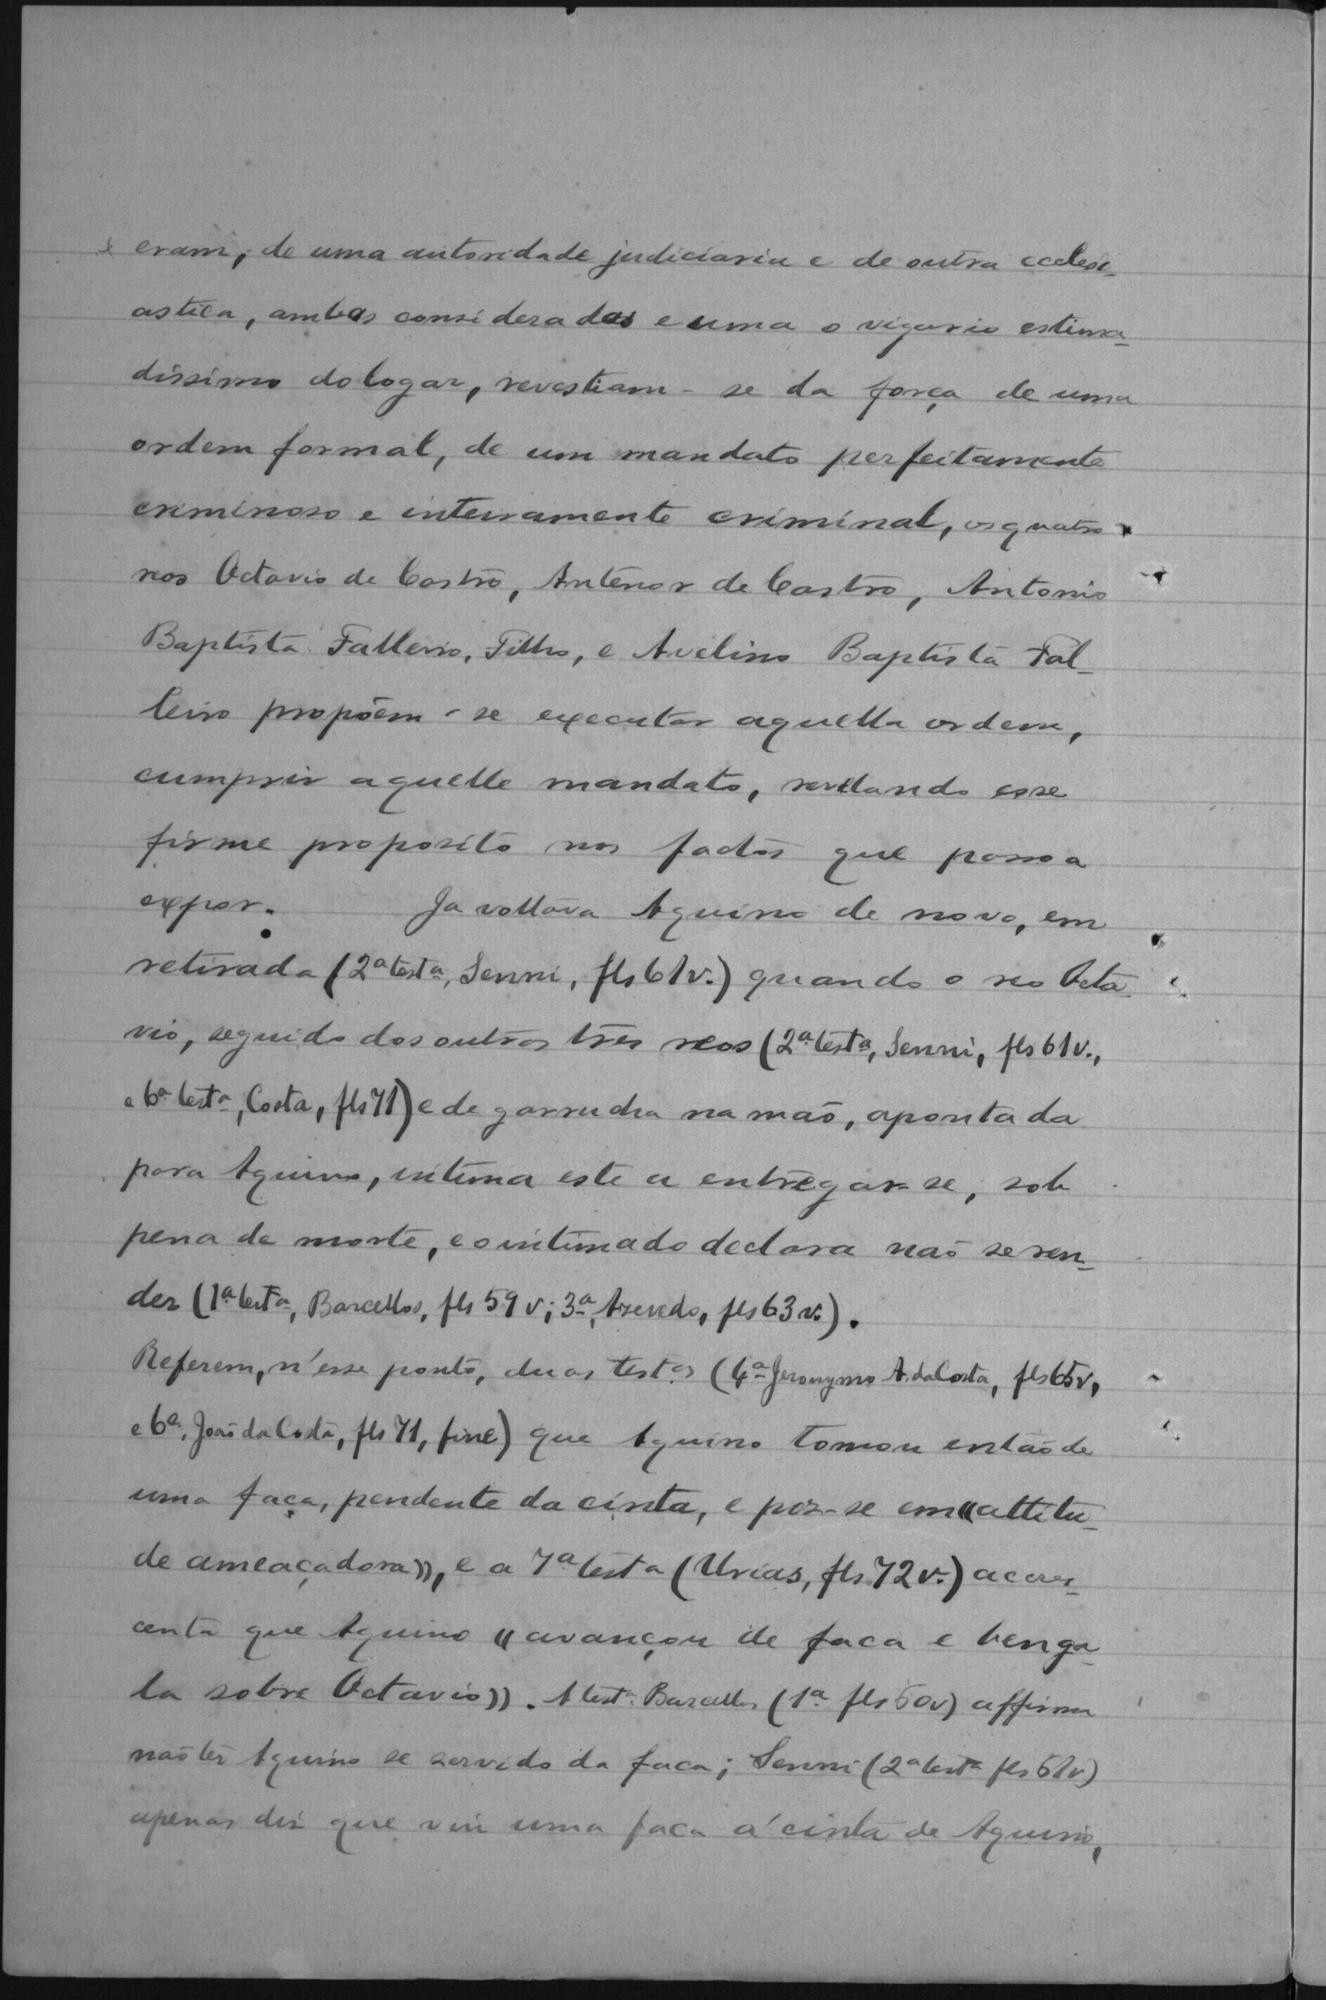 eram, de uma autoridade judiciaria e de outra ecclesi-
astica, ambas consideradas e uma o vigario estima-
dissimo do logar, revestiam-se da força de uma
ordem formal, de um mandato perfeitamente
criminoso e inteiramente criminal, os quatro
reos Octavio de Castro, Antenor de Castro, Antonio
Baptista Falleiro, Filho, e Avelino Baptista Fal-
leiro propõem-se executar aquella ordem,
cumprir aquelle mandato, revelando esse
firme proposito nos factos que passo a
expor. Ja voltava Aquino de novo, em
retirada (2ª testª, Senni, fls 61v.) quando o reo Octa-
vio, seguido dos outros tres reos (2ª testª, Senni, fls 61v.,
e 6ª testª, Costa, fls 71) e de garrucha na mão, apontada
para Aquino, intima este a entregar-se, sob
pena de morte, e o intimado declara não se ren-
der (1ª testª, Barcellos, fls 59v; 3ª, Azevedo, fls 63v.).
Referem, n'esse ponto, duas testªs (4ª Jeronymo A. da Costa, fls 65v,
e 6ª, João da Costa, fls 71, fine) que Aquino tomou então de
uma faca, pendente da cinta, e poz-se em «attitu-
de ameaçadora», e a 7ª testª (Urias, fls 72v.) acres-
centa que Aquino «avançou de faca e benga-
la sobre Octavio». A testª Barcellos (1ª fls 60v) affirma
não ter Aquino se servido da faca; Senni (2ª testª fls 61v)
apenas diz que viu uma faca á cinta de Aquino,